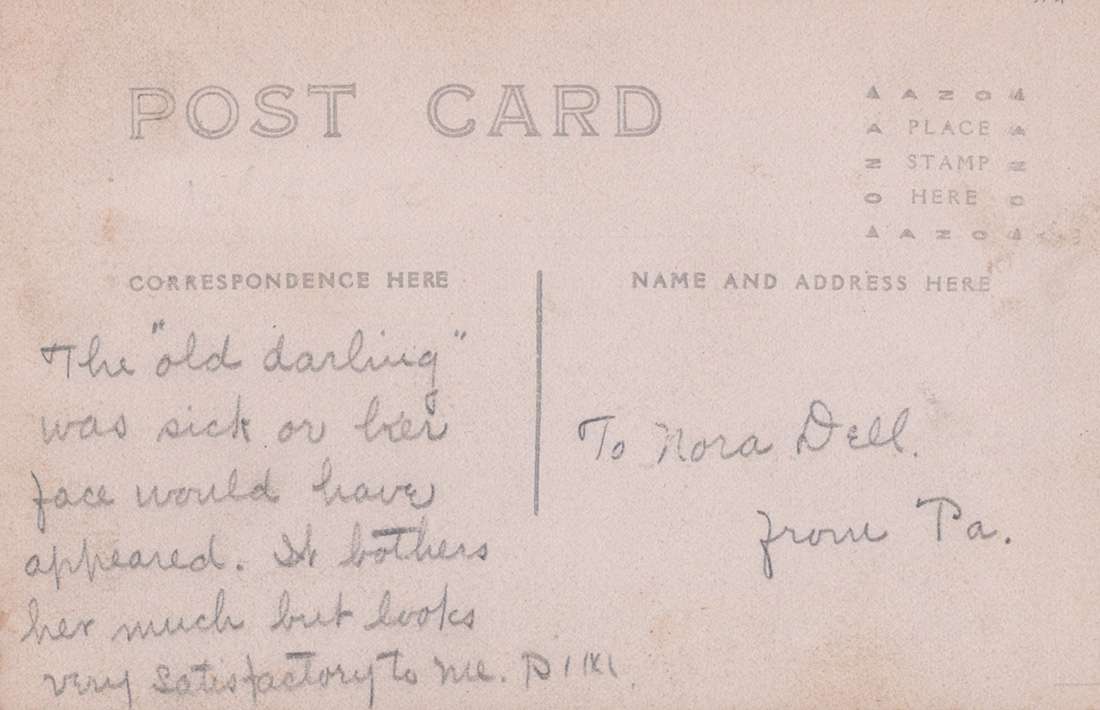 POST CARD
AZO
PLACE
STAMP
HERE
AZO
CORRESPONDENCE HERE
NAME AND ADDRESS HERE
The "old darling"
was sick or her
face would have
appeared. It bothers
her much but looks
very satisfactory to me.
To Nora Dell.
from Pa.